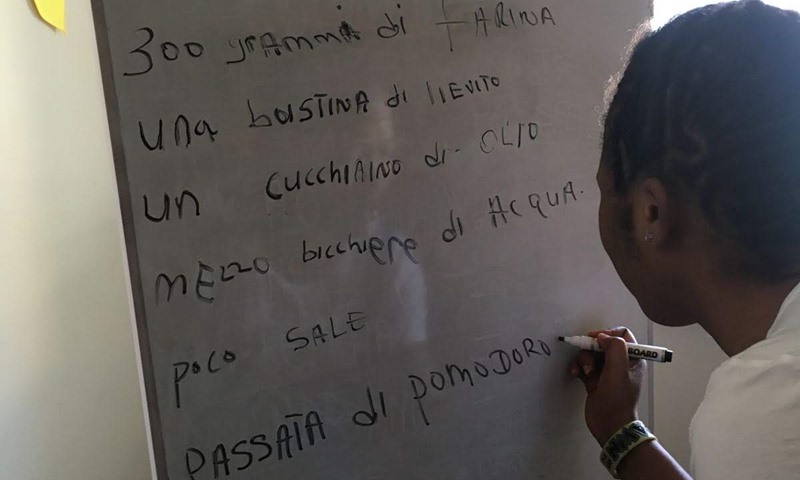 300 grammi di fARINA
una bustina di lIEVITO
un cucchiaino di OLIO
MEZZO bicchiere di ACQUA.
poco SALE
PASSATA di POMODORO
BOARD